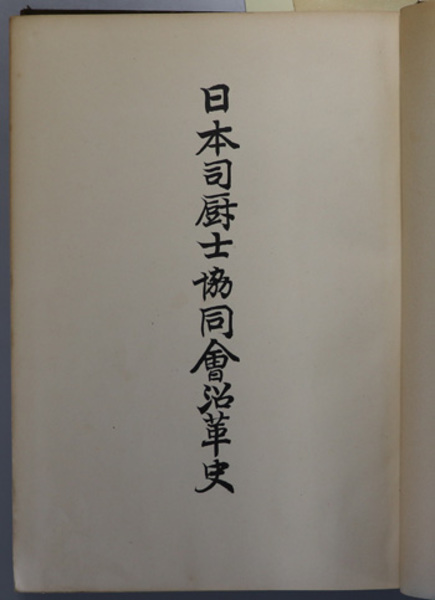 日本司厨士協同會沿革史